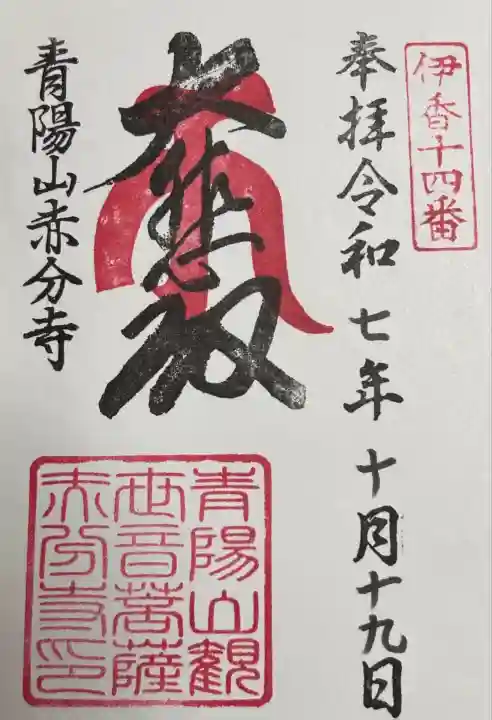 伊香十四番
奉拝令和七年十月十九日
大悲殿
青陽山赤分寺
青陽山観
世音菩薩
赤分寺印